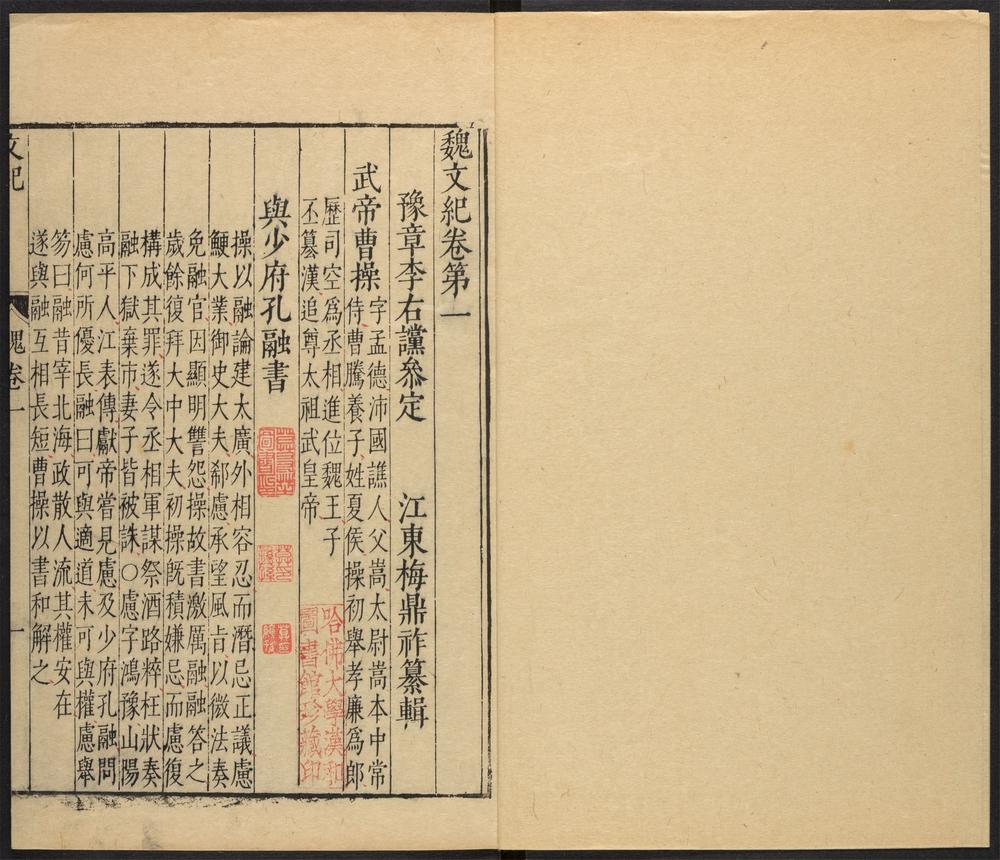 魏文紀卷第一
豫章李右讜參定 江東梅鼎祚纂輯
武帝曹操
字孟德沛國譙人父嵩太尉嵩本中常
侍曹騰養子姓夏侯操初舉孝廉爲郎
歷司空爲丞相進位魏王子
丕篡漢追尊太祖武皇帝
與少府孔融書
操以融論建太廣外相容忍而潛忌正議慮
鯁大業御史大夫郗慮承望風旨以微法奏
免融官因顯明讐怨操故書激厲融融答之
歲餘復拜大中大夫初操旣積嫌忌而慮復
構成其罪遂令丞相軍謀祭酒路粹枉狀奏
融下獄棄市妻子皆被誅○慮字鴻豫山陽
高平人江表傳獻帝嘗見慮及少府孔融問
慮何所優長融曰可與適道未可與權慮舉
笏曰融昔宰北海政散人流其權安在
遂與融互相長短曹操以書和解之
文紀 魏卷一 一
哈佛大學漢和
圖書館珍藏印